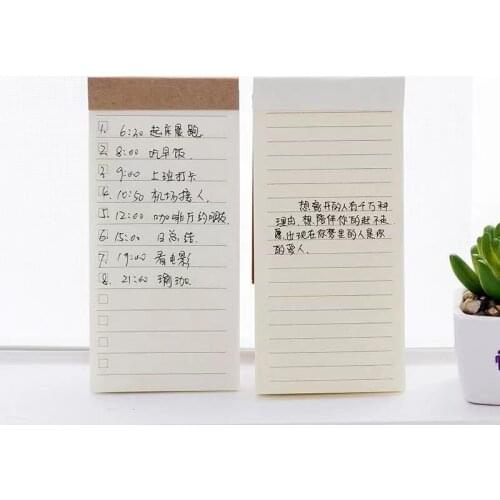 1. 6:30 起床晨跑
2. 8:00 吃早饭
3. 9:00 上班打卡
4. 10:50 机场接人
5. 12:00 咖啡厅约
6. 15:00 日总结
7. 19:00 看电影
8. 21:00 瑜珈
想离开的人有千万种
理由,想陪伴你的赶不走
出现在你梦里的人是你
的爱人.